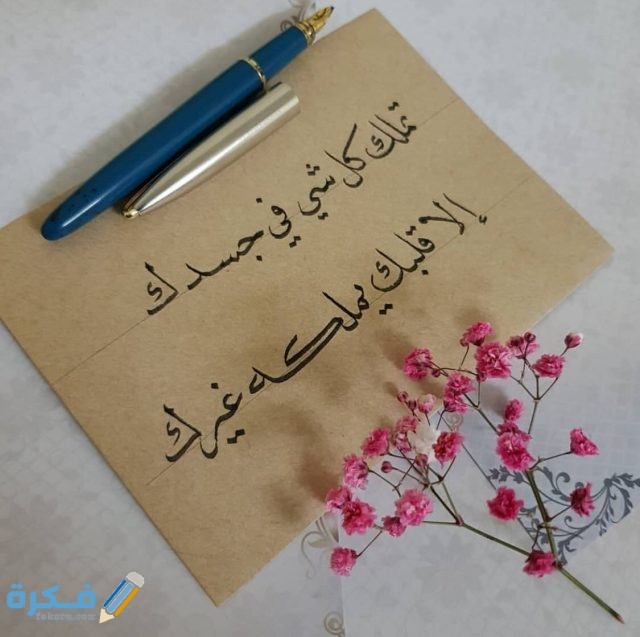 تملك كل شي في جسدك
إلا قلبك يملكه غيرك
فكرة
fekera.com